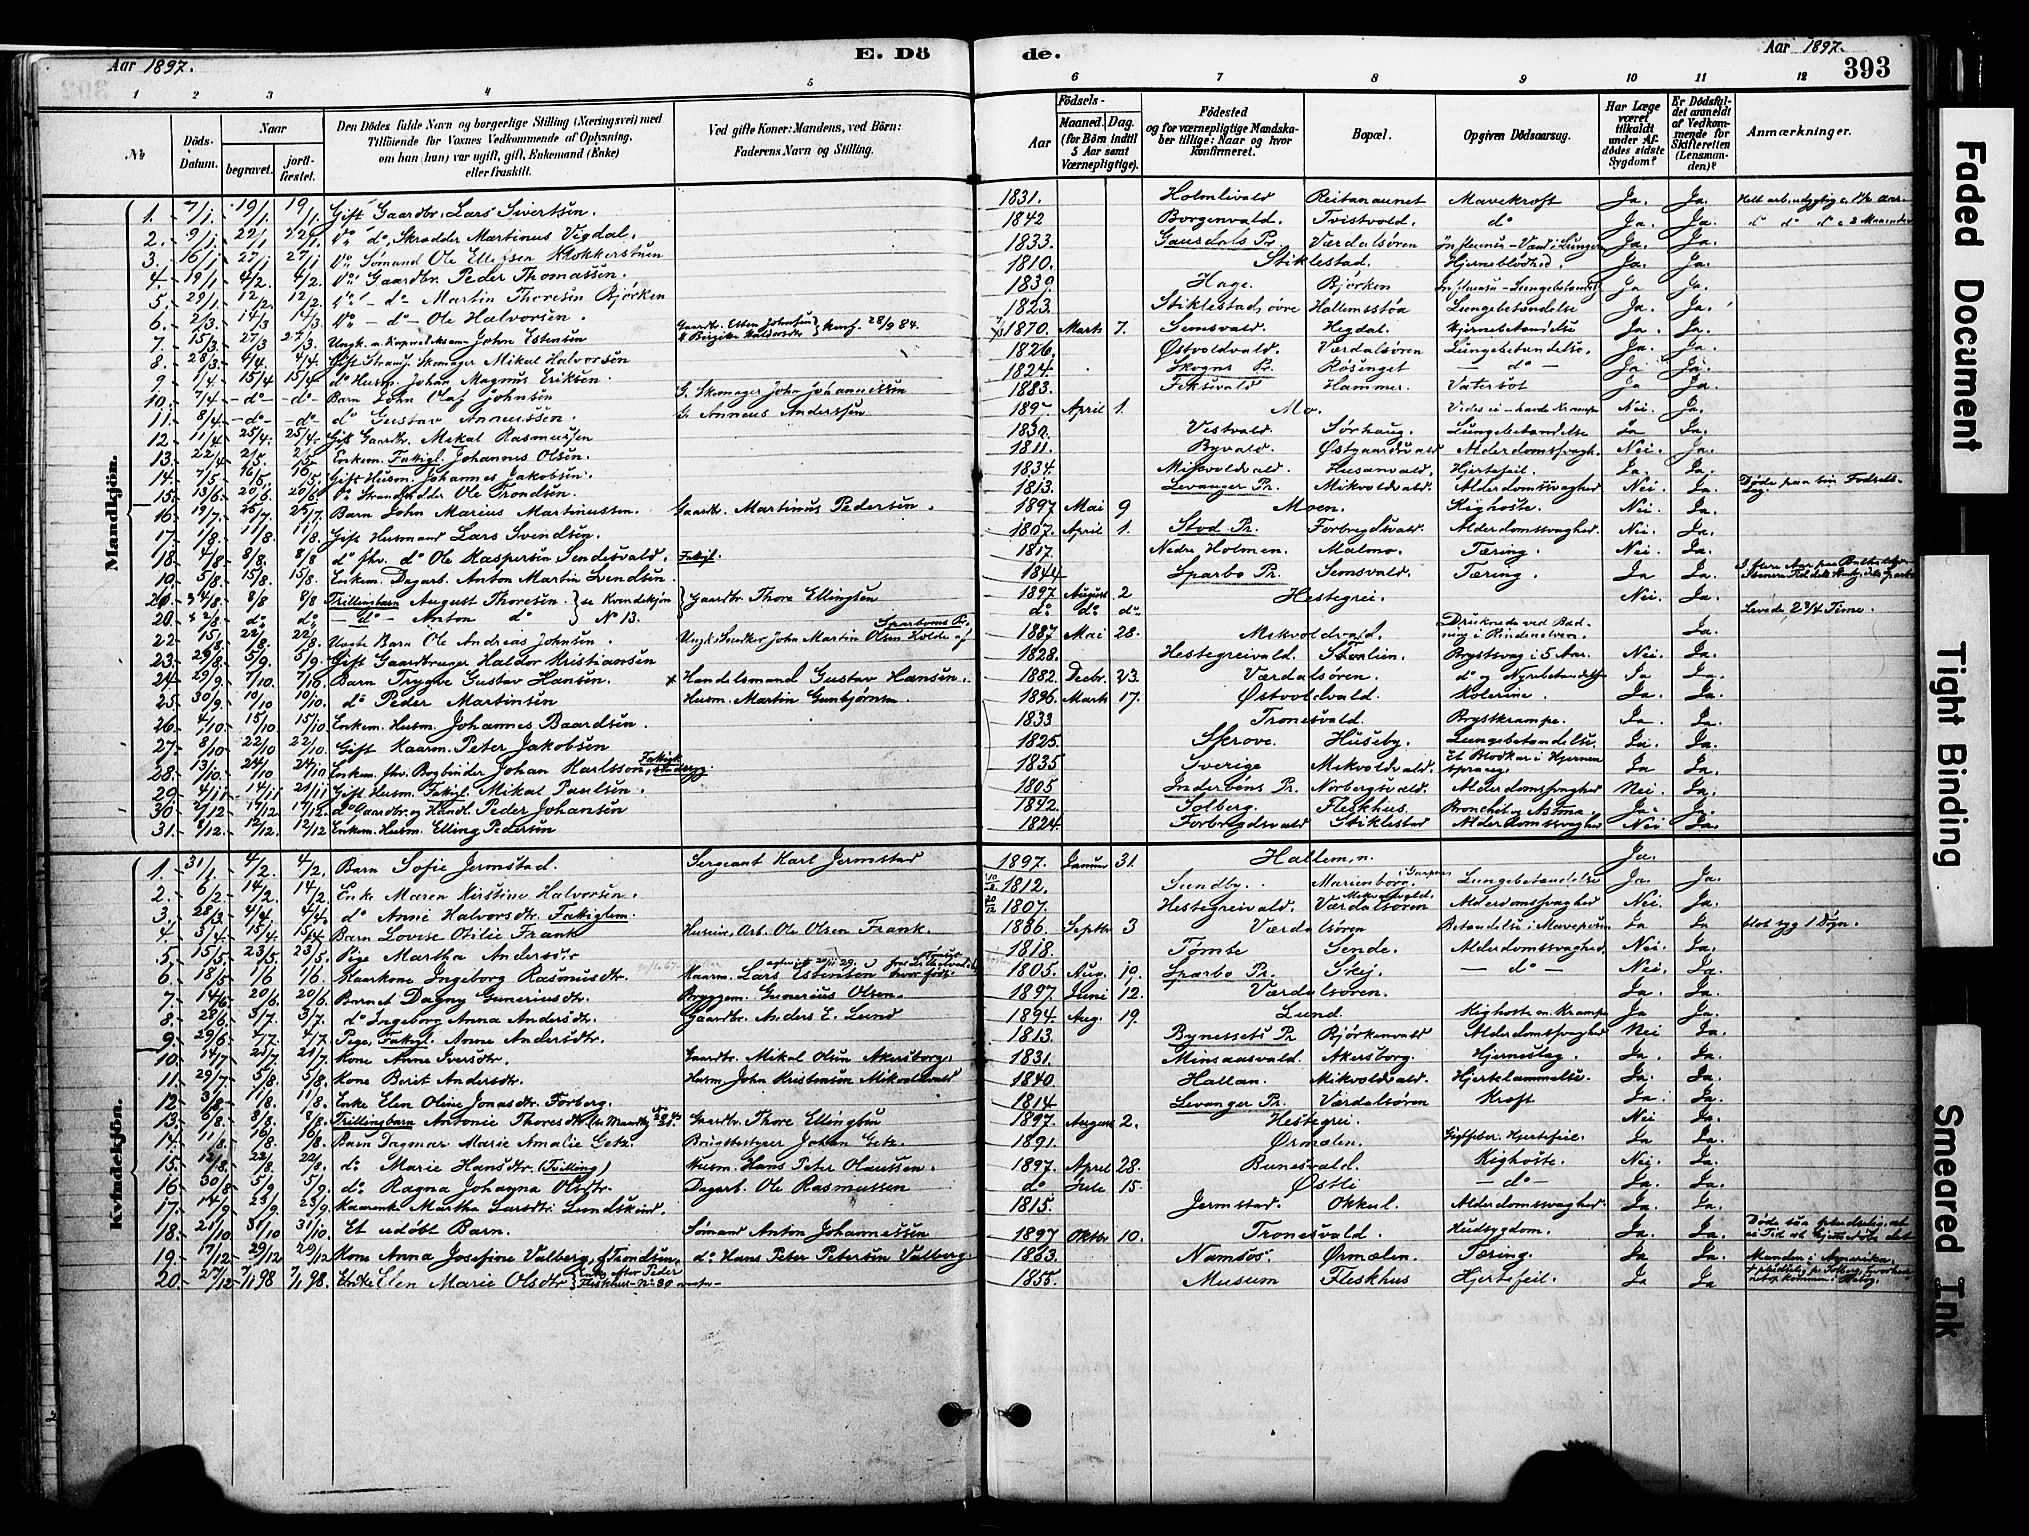 Aar 1897.
E. Dö
de.
Aar 1897.
393
1 2 3 4 5 6 7 8 9 10 11 12
No
Döds-Datum.
Naar
begravet.
jordfæstet.
Den Dödes fulde Navn og borgerlige Stilling (Næringsvei) med
Tilföiende for Voxnes Vedkommende af Oplysning,
om han (hun) var ugift, gift, Enkemand (Enke)
eller fraskilt.
Ved gifte Koner: Mandens, ved Börn:
Faderens Navn og Stilling.
Födsels-
Aar
Maaned. Dag.
(for Börn indtil
5 Aar samt
Værnepligtige).
Födested
og for værnepligtige Mandska-
ber tillige: Naar og hvor
konfirmeret.
Bopæl.
Opgiven Dödsaarsag.
Har Læge
været
tilkaldt
under Af-
dödes sidste
Sygdom?
Er Dödsfal-
det anmeldt
af Vedkom-
mende for
Skifteretten
(Lensman-
den)?
Anmærkninger.
Mandkjön.
1. 7/1. 19/1. 19/1. Gift Gaardbr. Lars Sivertsen. 1831. Holmlivald Reitanaunet Mavekræft Ja. Ja.
2. 9/1. 22/1 22/1. Do do, Skrædder Martinus Vigdal. 1842 Borgenvald. Tvistvold. do Ja. Ja.
3. 16/1. 27/1 27/1 Do Sømand Ole Ellefsen Klokkerstuen 1833. Gausdals Pr. Værdalsøren Ja. Ja.
4. 19/1 4/2. 4/2. Do Gaardbr. Peder Thomassen. 1810. Stiklestad. Hjerneblødhed. Ja. Ja.
5. 29/1 12/2. 12/2. Do - do Martin Thoresen Bjørken 1839. Hage. Bjørken Influensa - Lungebetændelse Ja Ja.
6. 2/3. 14/3 14/3. Do - do - Ole Halvorsen. 1823. Stiklestad, øvre Hallemsstøa Lungebetændelse Ja. Ja.
7. 15/3. 27/3 27/3. Ungk. John Estensen Gaardbr. Esten Johnsen Konf. 28/9 84. 1870. Marts 7. Semsvald. Hegdal. Hjernebetændelse Ja. Ja.
8. 28/3 4/4. 4/4. Gift Strands. Skomager Mikal Halvorsen 1826. Østvoldvald. Værdalsøren Lungebetændelse. Ja. Ja.
9. 1/4. 15/4 15/4 do Husm. Johan Magnus Eriksen. 1824. Skogns Pr. Røsenget - do - Ja. Ja.
10. 7/4 - do - - do - Barn John Olaf Johnsen G. Skomager John Johannessen 1883. Hammer. Vatersot Ja Ja.
11. 8/4 - do - - do - do Gustav Anneussen. G. Anneus Anderssen 1897. April 1. Mo. Vides ei - havde Krampe Nei. Ja.
12. 11/4 25/4. 25/4. Gift Gaardbr. Mikal Rasmussen 1830. Vestvald. Sørhaug. Lungebetændelse Ja Ja.
13. 22/4 2/5. 2/5. Enkem. Fattigl. Johannes Olsen. 1811. Byvald. Østgaardsvald Alderdomssvagh. Nei. Ja.
14. 7/5. 16/5. 16/5. Gift Husm. Johannes Jakobsen. 1834. Mikvoldvald. Husanvald. Hjertefeil. Ja. Ja.
15. 13/6 20/6. 20/6 Do Strandsidder Ole Trondsen. 1813. Levanger Pr. Mikvoldvald. Alderdomssvaghed Nei. Ja. Døde paa sin Fødsels-dag.
16. 19/7. 25/7. 25/7. Barn John Marius Martinussen. Gaardbr. Martinus Pedersen. 1897 Mai 9 Moen. Kighoste. Nei. Ja.
17. 1/8. 11/8. 11/8. Gift Husmand Lars Svendsen. 1807. April 1. Stod Pr. Forbregdsvald Alderdomssvaghed. Nei. Ja.
18. 4/8. 8/8. 8/8 do fhv. do Ole Kaspersen Sendesvald. Fattigl. 1817. Nedre Holmen. Malmo. Tæring. Nei. Ja.
19. 5/8. 15/8. 15/8. Enkem. Dagarb. Anton Martin Svendsen. 1844 Sparbo Pr. Semsvald. Tæring. Ja Ja.
20. 4/8. 8/8 8/8 Trillingbarn August Thoresen. } se Kvindekjøn Gaardbr. Thore Ellingsen 1897 August 2 Hestegrei. Nei. Ja.
20. 2/8. do do - do - Anton do } N 13. do. do. do. Levede 2 3/4 Time.
22. 15/8 22/8 22/8. Uægte Barn Ole Andreas Johnsen. Ungk. Snedker John Martin Olsen Holde af Sparboens Pr. 1887 Mai 28. Mikvoldvald. Druknede ved Bad-ning i Rindenelven. Ja.
23. 29/8 5/9. 5/9. Gift Gaardbruger Haldor Kristiansen 1828. Hestegreivald. Stalien. Brystsvag i 5 Aar. Nei. Ja.
24. 29/9. 7/10. 7/10. Barn Trygve Gustav Hansen. Handelsmand Gustav Hansen. 1882. Decbr. 23. Værdalsøren. do og Nyrebetændelse Ja Ja.
25. 30/9 10/10 10/10. do Peder Martinsen Husm. Martin Gunbjørnsen 1896 Marts 17. Østvoldvald. Kolerine. Ja. Ja.
26. 4/10 15/10 15/10 Enkem. Husm. Johannes Baardsen. 1833 Tronesvald. Brystkrampe. Ja. Ja.
27. 8/10 22/10 22/10. Gift Kaarm. Peter Jakobsen 1825. Skrove. Huseby. Lungebetændelse. Ja. Ja.
28. 13/10. 24/10 24/10 Enkem. fhv. Bogbinder Johan Karlsson, Fattigl. 1835 Sverige Mikvoldvald. Et Blodkar i Hjernen sprang. Ja Ja.
29. 4/11 14/11 21/11 Gift Husm. Fattigl. Mikal Paulsen. 1805 Inderøens Pr. Norbergsvald. Alderdomssvaghed Nei. Ja.
30. 2/12 17/12 17/12. do Gaardbr. og Handl. Peder Johansen 1842. Solberg. Fleskhus. Bronchit og Astma Ja. Ja.
31. 8/12. 12/12. 12/12 Enkem. Husm. Elling Pedersen 1824. Forbregdsvald Stiklestad Alderdomssvaghed Nei Ja.
Kvindekjön.
1. 31/1. 4/2. 4/2. Barn Sofie Jermstad. Sergeant Karl Jermstad 1897. Januar 31. Hallem, n. Ja.
2. 6/2. 14/2. 14/2 Enke Maren Kirstine Halvorsen. 1812. Sundby. Marienborg. Lungebetændelse Ja. Ja.
3. 28/3 4/4. 4/4. do Anne Halvorsdtr. Fattiglem. 1807. Hestegreivald. Værdalsøren Alderdomssvaghed Nei. Ja.
4. 5/4 15/4 15/4 Barn Lovise Otilie Frank Husein. Arb. Ole Olsen Frank. 1886. Septbr 3 Værdalsøren Betændelse i Ja Ja. blot syg 1 Døgn.
5. 15/5 23/5 23/5. Pige Martha Andersdtr 1818. Tømte Sende. Alderdomssvaghed. Nei. Ja.
6. 18/5 1/6 1/6. Kaarkone Ingeborg Rasmusdtr. Kaarm. Lars Estensen 1805. Aug. 19. Sparbo Pr. Skej. - do - Nei. Ja.
7. 14/6. 20/6 20/6. Barnet Dagny Guneriusdtr. Bryggem. Gunerius Olsen. 1897. Juni 12. Værdalsøren. Ja. Ja.
8. 28/6 3/7. 3/7. do Ingeborg Anna Andersdtr. Gaardbr. Anders E. Lund 1894. Aug. 19. Lund. Kighoste m. Krampe Ja Ja.
9. 29/6 4/7. 4/7. Pige, Fattigl. Anne Andersdtr. 1813. Bynessets Pr. Bjørkenvald Alderdomssvaghed Nei Ja.
10. 14/7 25/7 25/7. Kone Anne Iversdtr. Gaardbr. Mikal Olsen Akersborg. 1831. Minsaasvald. Akersborg. Hjerneslag. Ja. Ja.
11. 29/7 5/8. 5/8. Kone Berit Andersdtr. Husm. John Kristensen Mikvoldvald 1840. Hallan. Mikvoldvald. Hjertelammelse. Ja. Ja.
12. 3/8 11/8 11/8. Enke Elen Oline Jonasdtr. Forberg. 1814 Levanger Pr. Værdalsøren Kræft Ja. Ja.
13. 6/8. 8/8. 8/8 Trillingbarn Antonie Thoresdtr. Gaardbr. Thore Ellingsen 1897. August 2. Hestegrei. Nei Ja.
14. 11/8 16/8 16/8. Barn Dagmar Marie Amalie Getz. Brugsbestyrer Johan Getz. 1891. Ørmælen. Gigtfeber. Hjertefeil. Ja Ja.
15. 12/8. 22/8. 22/8. do Marie Hansdtr. (Tvilling) Husm. Hans Peter Olaussen. 1897. April 28. Bunesvald. Kighoste. Nei. Ja.
16. 30/8 5/9 5/9 do Ragna Johanna Olsdtr. Dagarb. Ole Rasmussen do Juli 15. Østli - do - Ja. Ja.
17. 14/9 23/9 23/9. Kaarenke Martha Larsdtr. Lundskind. 1815. Jermstad. Okkul. Alderdomssvaghed. Ja. Ja.
18. 21/10 31/10 31/10. Et udøbt Barn. Sømand Anton Johannessen 1897 Oktbr 10. Tronesvald. Hudsygdom. Ja. Ja.
19. 17/12 29/12 29/12 Kone Anna Josefine Valberg, f. Trondsen do. Hans Peter Petersen Valberg. 1863. Namsos. Ørmælen. Tæring. Ja Ja. Manden i Amerika.
20. 27/12 7/1 98 7/1 98. Enke Elen Marie Olsdtr. 1855. Musum Fleskhus Hjertefeil. Ja Ja
Faded Document
Tight Binding
Smeared Ink